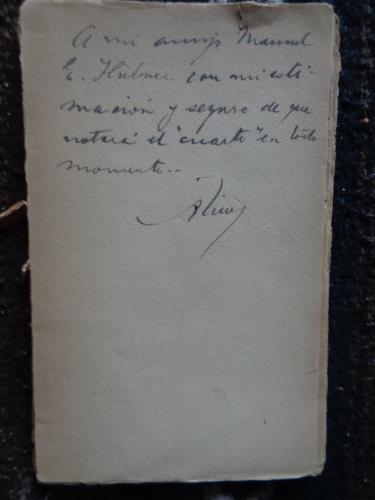 A mi amigo Manuel
E. Hübner con mi esti-
mación y seguro de que
notará el "cuarto" en todo
momento..